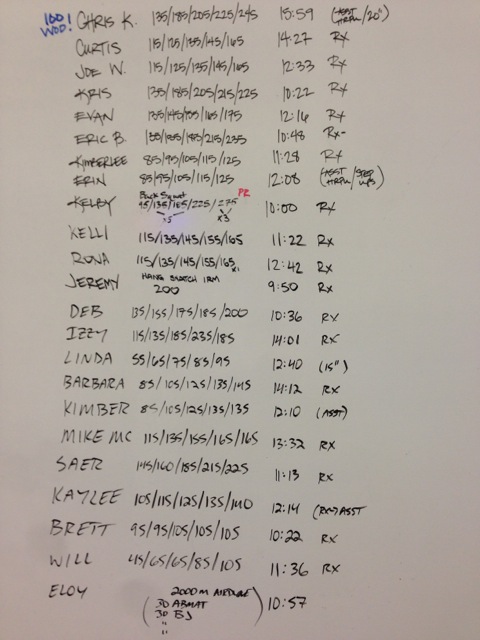 100 WOD! CHRIS K. 135/185/205/225/245 15:59 (ASST HRPU/20")
CURTIS 115/125/135/145/165 14:27 RX
JOE W. 115/125/135/145/165 12:33 RX
KRIS 135/185/205/215/225 10:22 RX
EVAN 135/145/155/165/175 12:16 RX
ERIC B. 185/215/235 10:48 RX-
KIMBERLEE 85/95/105/115/125 11:28 RX
ERIN 85/95/105/115/125 12:08 (ASST HRPU/STEP UPS)
Back Squat PR
KELBY 95/135/185/225/275 10:00 RX
x5 x3
KELLI 115/135/145/155/165 11:22 RX
RONA 115/135/145/155/165 x1 12:42 RX
JEREMY HANG SNATCH 1RM 9:50 RX
200
DEB 135/155/175/185/200 10:36 RX
IZZY 115/135/185/235/185 14:01 RX
LINDA 55/65/75/85/95 12:40 (15")
BARBARA 85/105/125/135/145 14:12 RX
KIMBER 85/105/125/135/135 12:10 (ASST)
MIKE MC 115/135/155/165/165 13:32 RX
SAER 145/160/185/215/225 11:13 RX
KAYLEE 105/115/125/135/140 12:14 (RX) ASST
BRETT 95/95/105/105/105 10:22 RX
WILL 45/65/65/85/105 11:36 RX
ELOY (2000M AIRDYNE
30 ABMAT
30 BJ
"
") 10:57